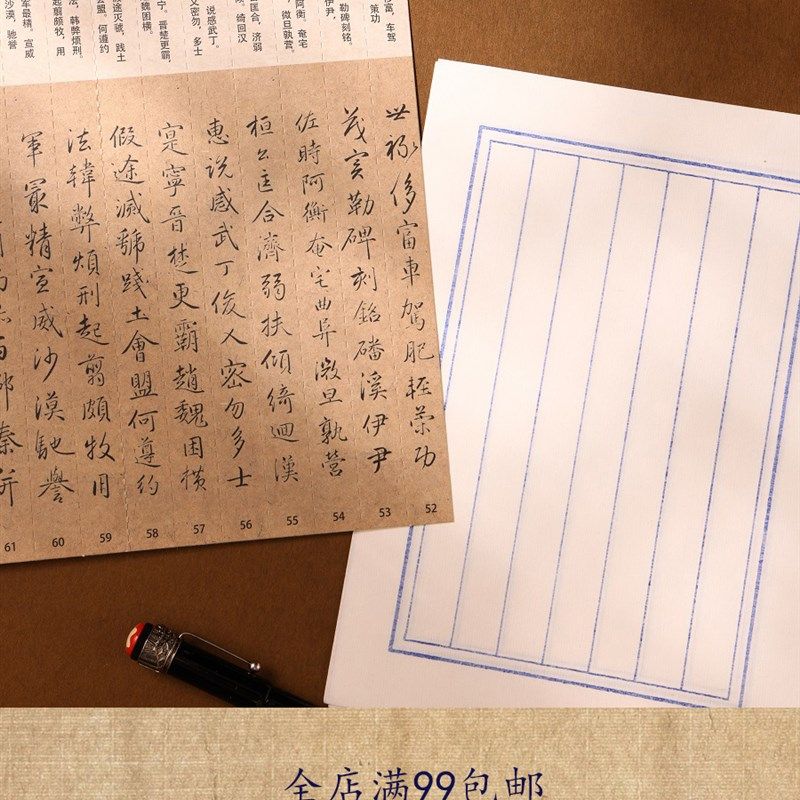 富，车驾
策功
勒碑刻铭。
伊尹，
阿衡。奄宅
微旦孰营。
匡合，济弱
绮回汉
说感武丁。
乂密勿，多士
宁。晋楚更霸，
魏困横。
途灭虢，践土
盟。何遵约
法，韩弊烦刑。
起翦颇牧，用
军最精。宣威
沙漠，驰誉
世禄侈富車駕肥輕策功
茂實勒碑刻銘磻溪伊尹
佐時阿衡奄宅曲阜微旦孰營
桓公匡合濟弱扶傾綺迴漢
惠说感武丁俊乂密勿多士
寔寧晉楚更霸趙魏困横
假途滅虢踐土會盟何遵約
法韓弊煩刑起翦頗牧用
軍最精宣威沙漠馳譽
百郡秦并
61 60 59 58 57 56 55 54 53 52
全店满99包邮